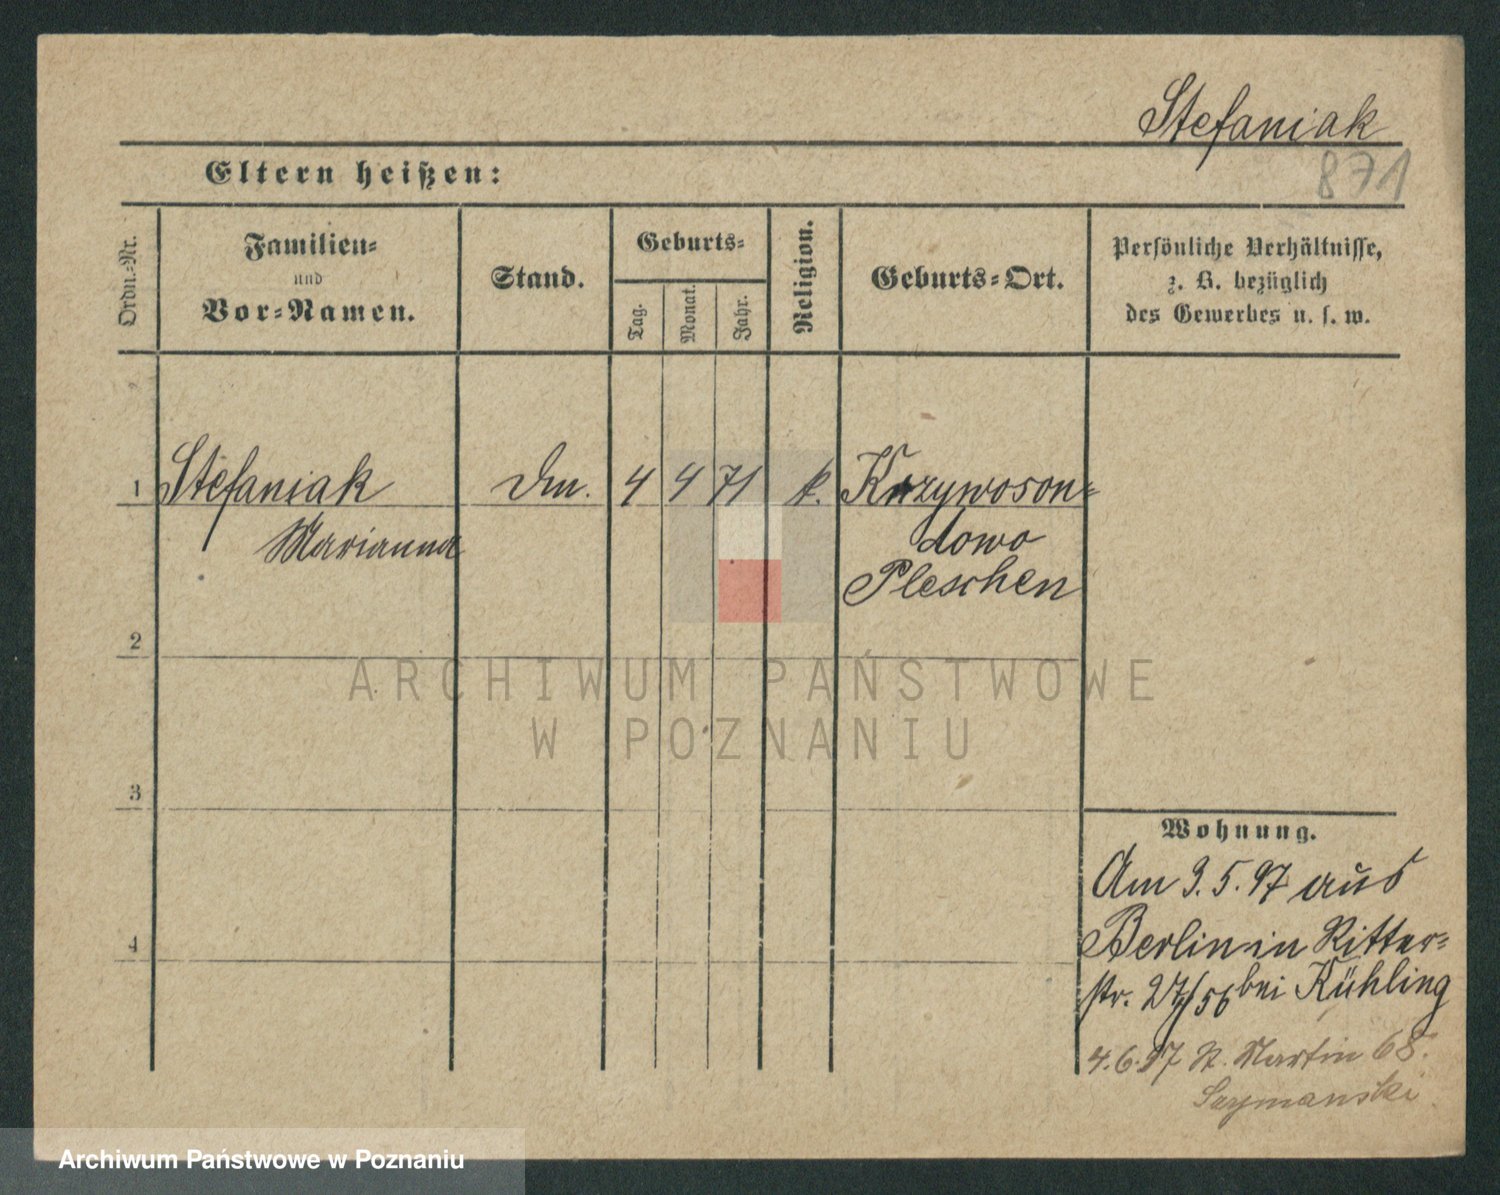 Stefaniak
871
Eltern heißen:
Ordn.-Nr.
Familien-
und
Vor-Namen.
Stand.
Geburts-
Tag.
Monat.
Jahr.
Religion.
Geburts-Ort.
Persönliche Verhältnisse,
z. B. bezüglich
des Gewerbes u. s. w.
1 Stefaniak Dm. 4 4 71 k. Krzywoson-
Marianna dowo
Pleschen
2
3
4
Wohnung.
Am 3.5.97 aus
Berlin in Ritter-
str. 27/56 bei Kühling
4.6.97 St. Martin 68.
Szymanski
ARCHIWUM PAŃSTWOWE
W POZNANIU
Archiwum Państwowe w Poznaniu